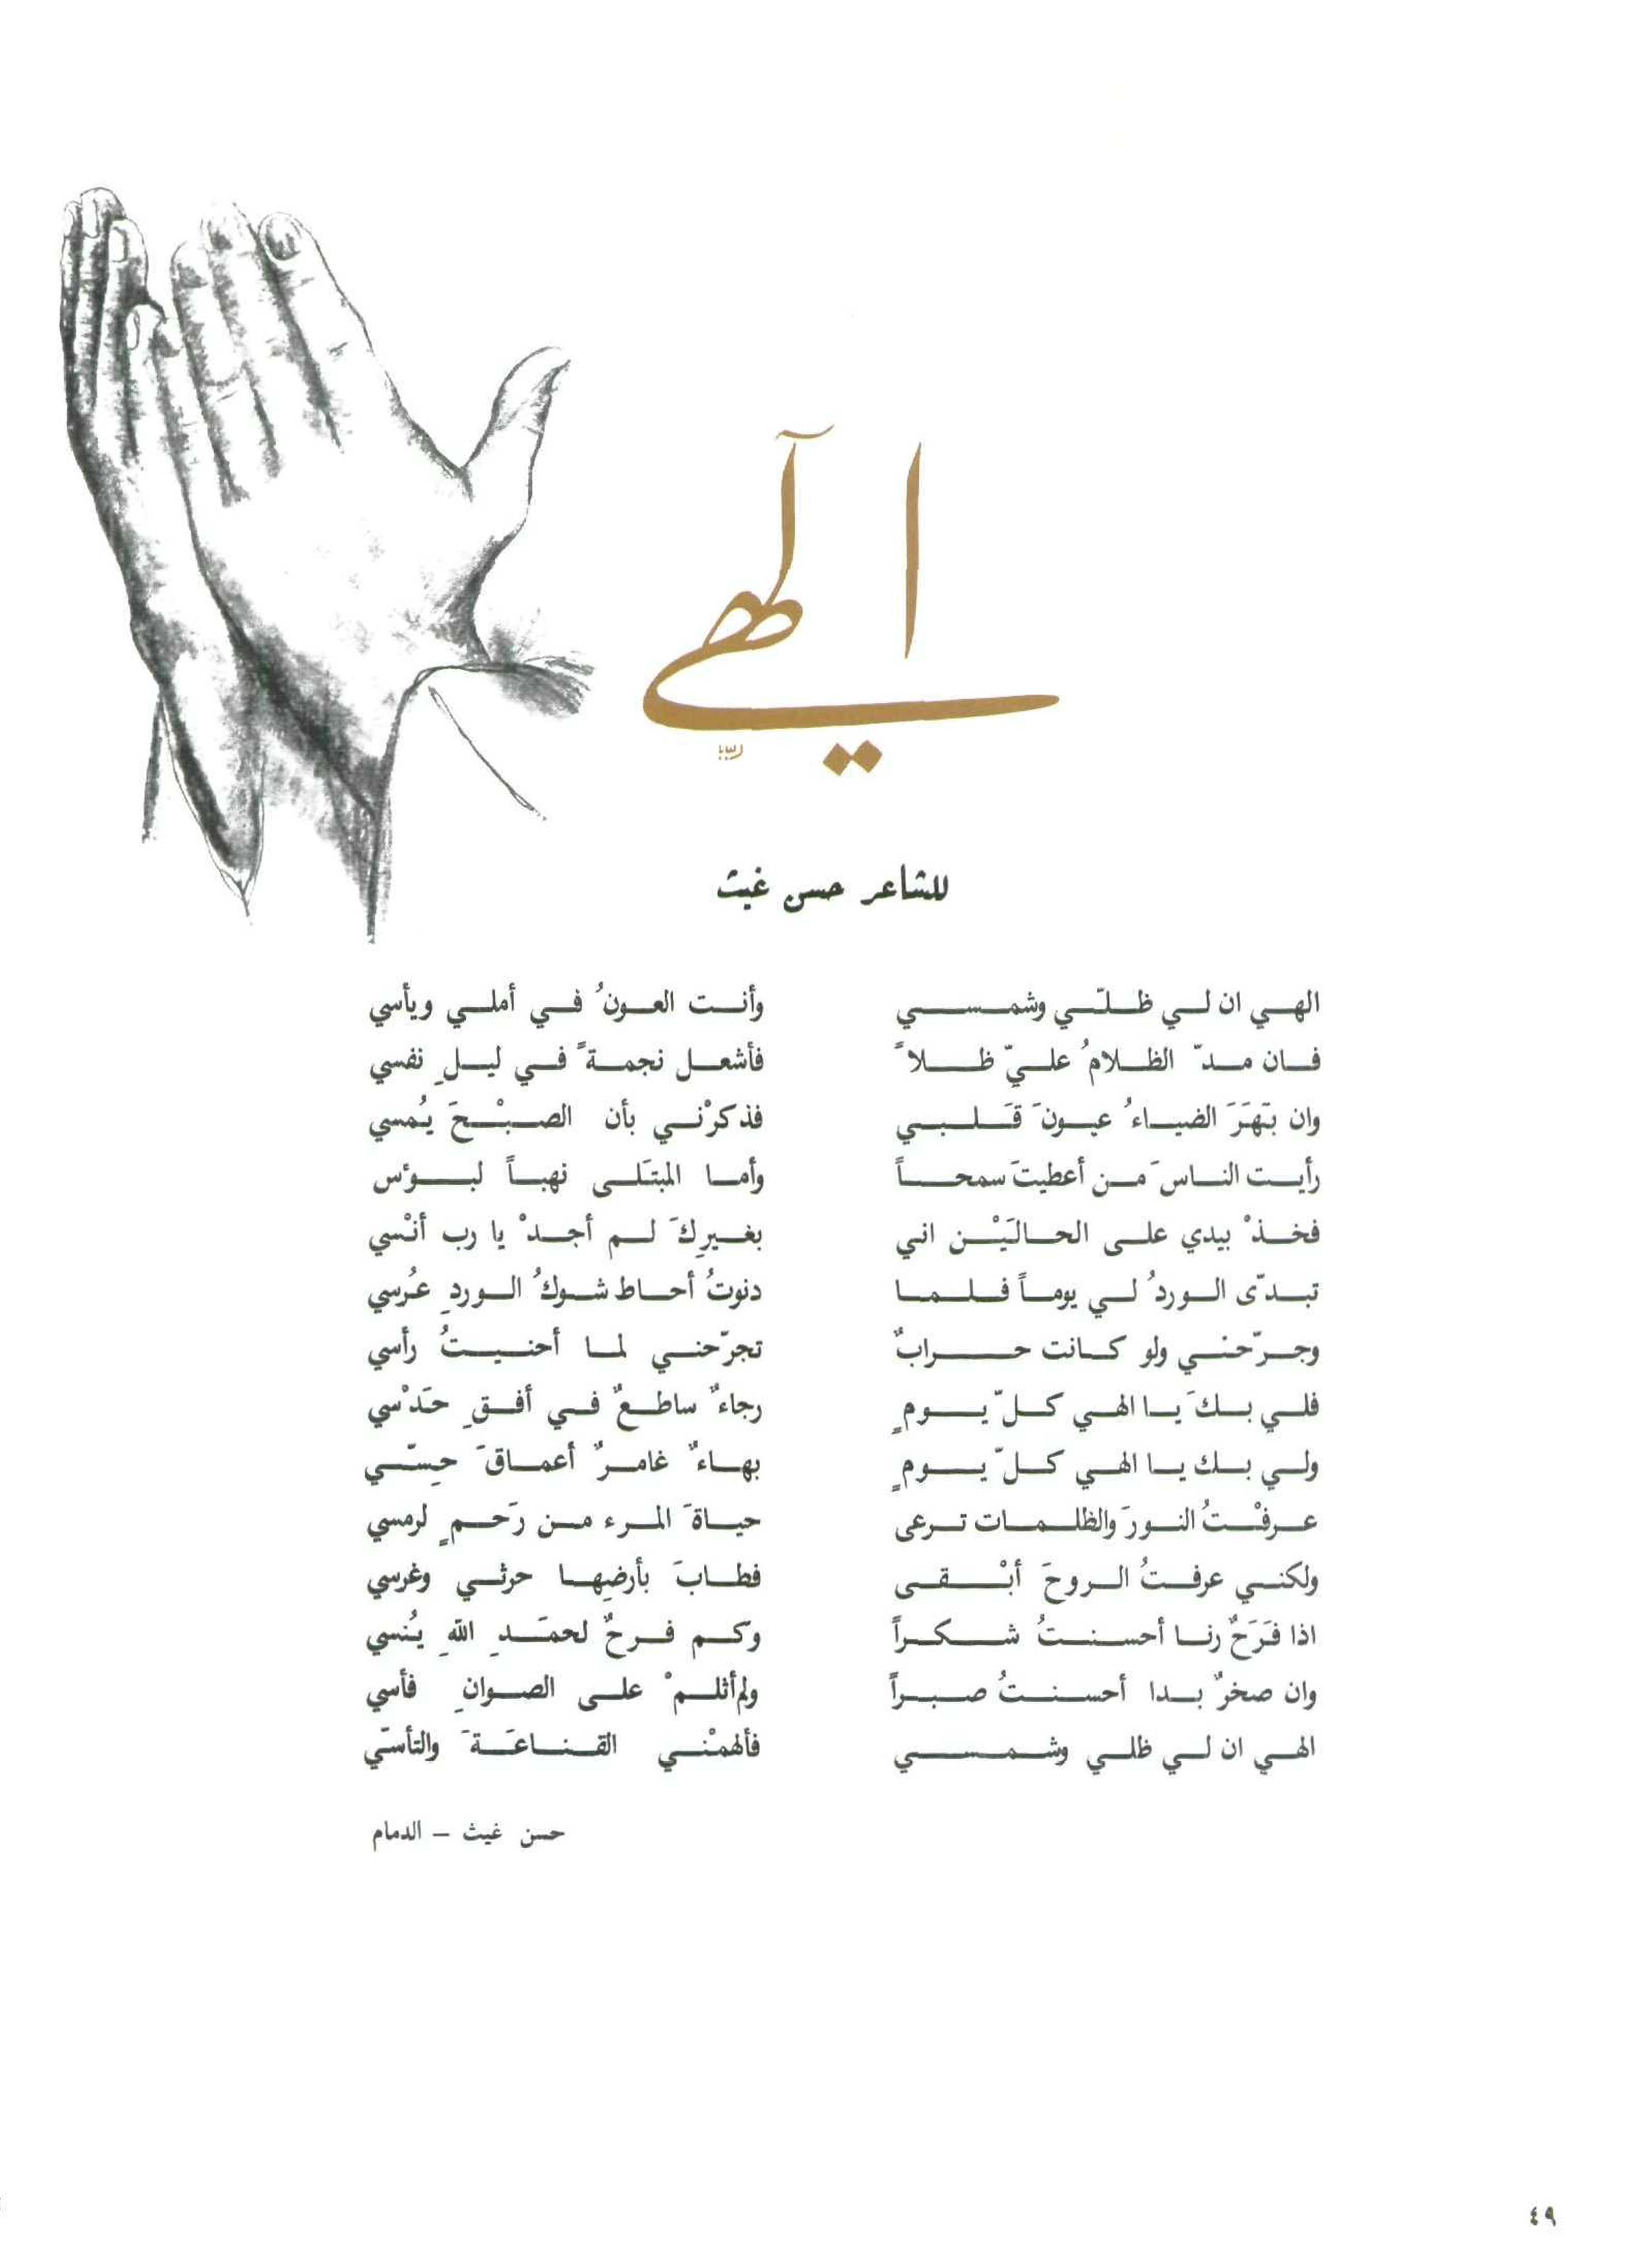 الهي
للشاعر حسن غيث
الهي ان لي ظلّي وشمسي وأنت العونُ في أملي ويأسي
فان مدّ الظلامُ عليّ ظلاً فأشعل نجمةً في ليلِ نفسي
وان بَهَرَ الضياءُ عيونَ قَلبي فذكرْني بأن الصبْحَ يُمسي
رأيت الناسَ من أعطيتَ سمحاً وأما المبتَلى نهباً لبؤس
فخذْ بيدي على الحاليْن اني بغيرِكَ لم أجدْ يا رب أنْسي
تبدّى الوردُ لي يوماً فلما دنوتُ أحاط شوكُ الوردِ عُرسي
وجرّحني ولو كانت حرابٌ تجرّحني لما أحنيتُ رأسي
فلي بكَ يا الهي كلّ يومٍ رجاءٌ ساطعٌ في أفقِ حَدْسي
ولي بك يا الهي كلّ يومٍ بهاءٌ غامرٌ أعماقَ حِسّي
عرفْتُ النورَ والظلمات ترعى حياةَ المرء من رَحمٍ لرمسي
ولكني عرفتُ الروحَ أبْقى فطابَ بأرضِها حرثي وغرسي
اذا فَرَحٌ رنا أحسنتُ شكراً وكم فرحٌ لحمَدِ اللهِ يُنسي
وان صخرٌ بدا أحسنتُ صبراً ولم أثلمْ على الصوانِ فأسي
الهي ان لي ظلي وشمسي فألهمْني القناعَةَ والتأسّي
حسن غيث – الدمام
٤٩